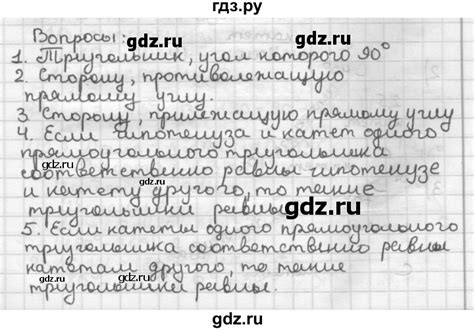 гдз.рф
Вопросы:
1. Треугольник, угол которого 90°
2. Сторону, противолежащую
прямому углу.
3 Сторону, прилежащую прямому углу
4. Если гипотенуза и катет одного
прямоугольного треугольника
соответственно равны гипотенузе
и катету другого, то такие
треугольники равны
5. Если катеты одного прямоугольного
треугольника соответственно равны
катетам другого, то такие
треугольники равны.
gdz.ru
gdz.ru
gdz.ru
gdz.ru
gdz.ru
gdz.ru
gdz.ru
gdz.ru